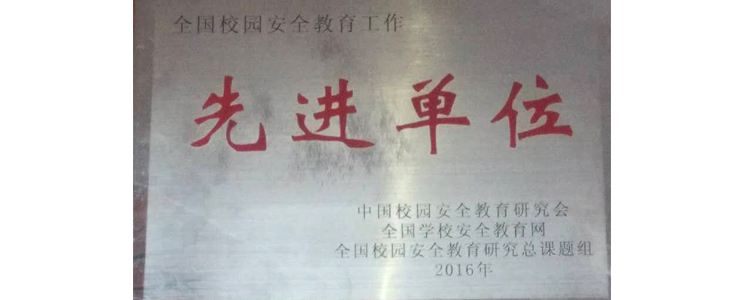 全国校园安全教育工作
先进单位
中国校园安全教育研究会
全国学校安全教育网
全国校园安全教育研究总课题组
2016年